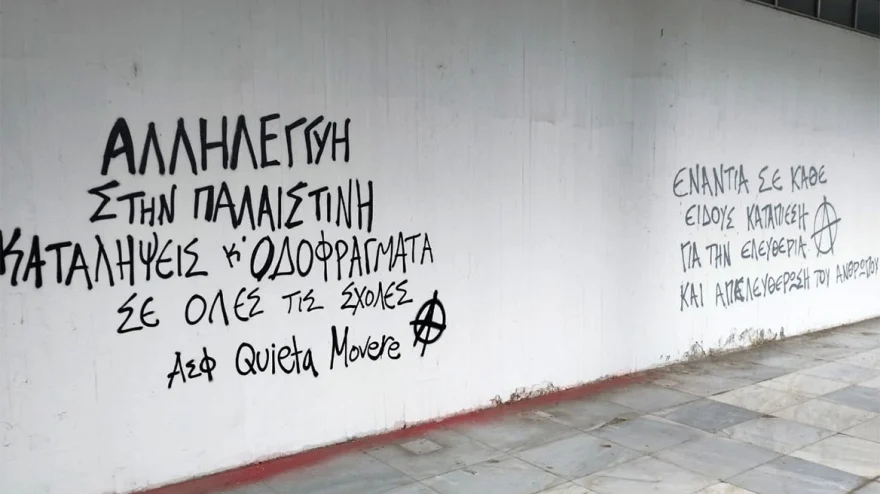 ΑΛΛΗΛΕΓΓΥΗ
ΣΤΗΝ ΠΑΛΑΙΣΤΙΝΗ
ΚΑΤΑΛΗΨΕΙΣ Κ' ΟΔΟΦΡΑΓΜΑΤΑ
ΣΕ ΟΛΕΣ ΤΙΣ ΣΧΟΛΕΣ
ΑΣΦ Quieta Movere
ΕΝΑΝΤΙΑ ΣΕ ΚΑΘΕ
ΕΙΔΟΥΣ ΚΑΤΑΠΙΕΣΗ
ΓΙΑ ΤΗΝ ΕΛΕΥΘΕΡΙΑ
ΚΑΙ ΑΠΕΛΕΥΘΕΡΩΣΗ ΤΟΥ ΑΝΘΡΩΠΟΥ